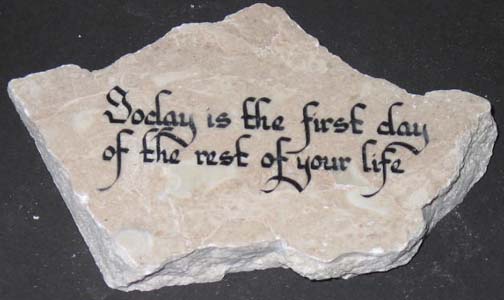 Today is the first day
of the rest of your life